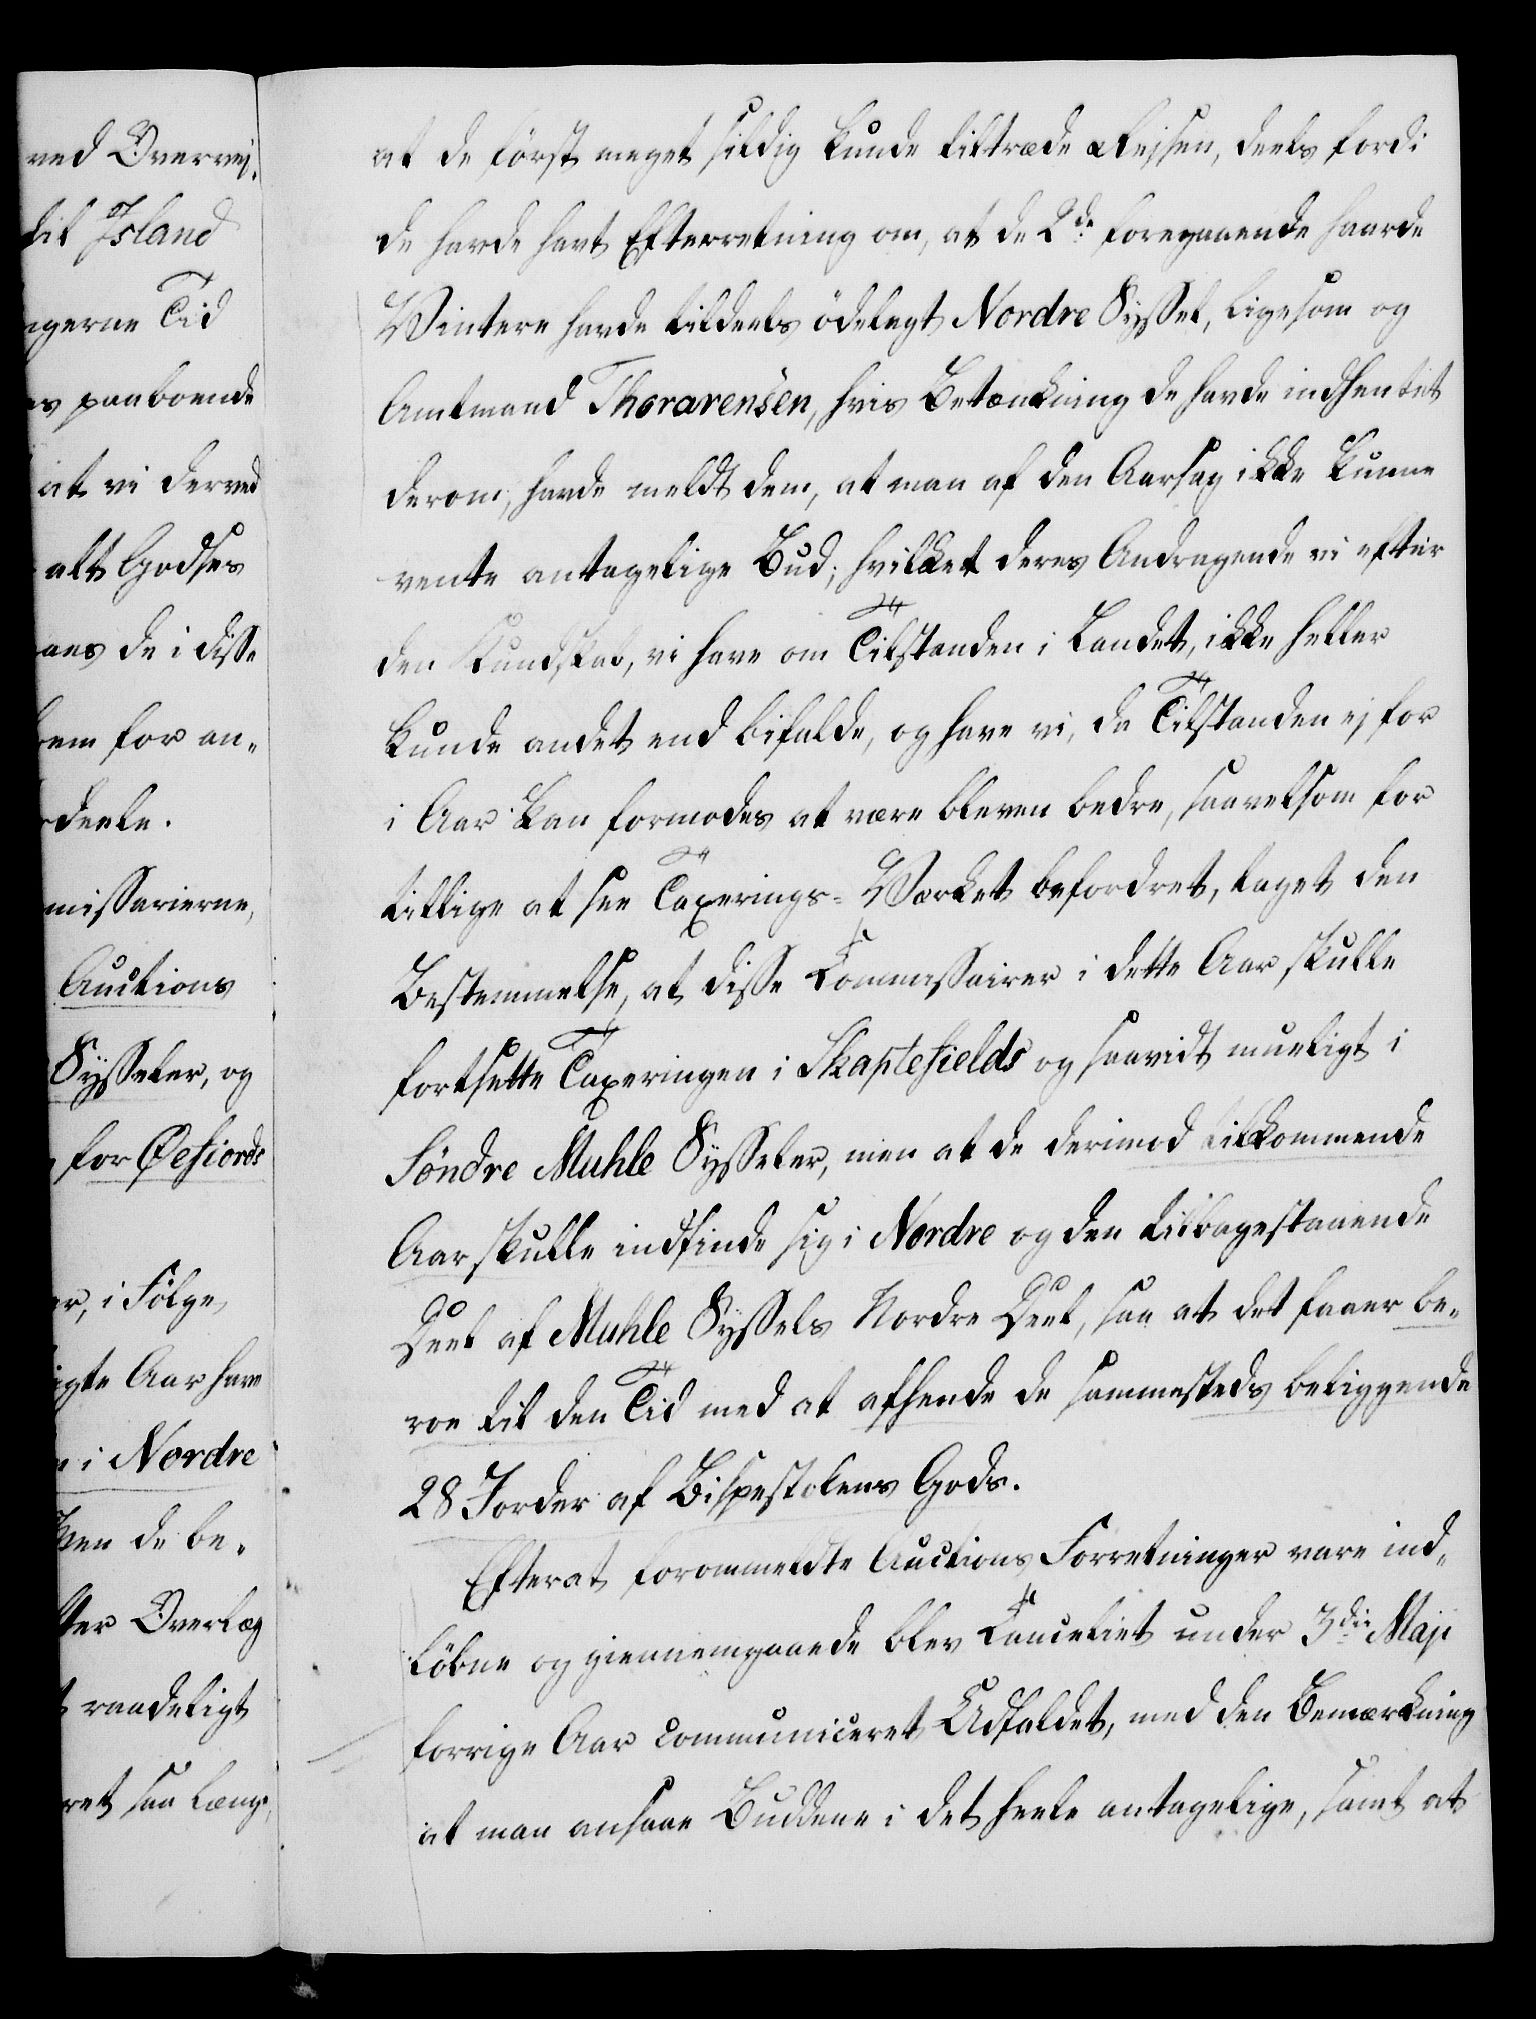 ved Overvej-
til Island
gerne Tid
paaboende
at vi derved
alt Godses
de i disse
for an-
deele.
missarierne,
Auctions
Sysseler, og
for Øefiords
i Følge
Aar have
i Nordre
de be-
Overlæg
raadeligt
saa længe
at de først meget sildig kunde tiltræde Reisen, deels fordi
de havde havt Efterretning om, at de 2de foregaaende haarde
Vintere havde tildeels ödelagt Nordre Syssel, ligesom og
Amtmand Thorarensen, hvis Betænkning de havde indhentet
derom, havde meldt dem, at man af den Aarsag ikke kunne
vente antagelige Bud; hvilket deres Andragende vi efter
den Kundskab, vi have om Tilstanden i Landet, ikke heller
kunde andet end bifalde, og have vi, da Tilstanden ej for
i Aar kan formodes at være bleven bedre, saavelsom for
tillige at see Taxerings-Værket befordret, taget den
Bestemmelse, at disse Commissairer i dette Aar skulle
fortsette Taxeringen i Skaptefields og saavidt mueligt i
Söndre Muhle Sysseler, men at de derimod tilkommende
Aar skulle indfinde sig i Nordre og den tilbagestaaende
Deel af Muhle Syssels Nordre Deel, saa at det faaer be-
roe til den Tid med at afhende de sammesteds beliggende
28 Jorder af Bispestolens Gods.
Efterat forommeldte Auctions Forretninger vare ind-
löbne og giennemgaaede blev Canceliet under 3die Maji
forrige Aar communiceret Udfaldet, med den Bemærkning
at man ansaae Buddene i det heele antagelige, samt at